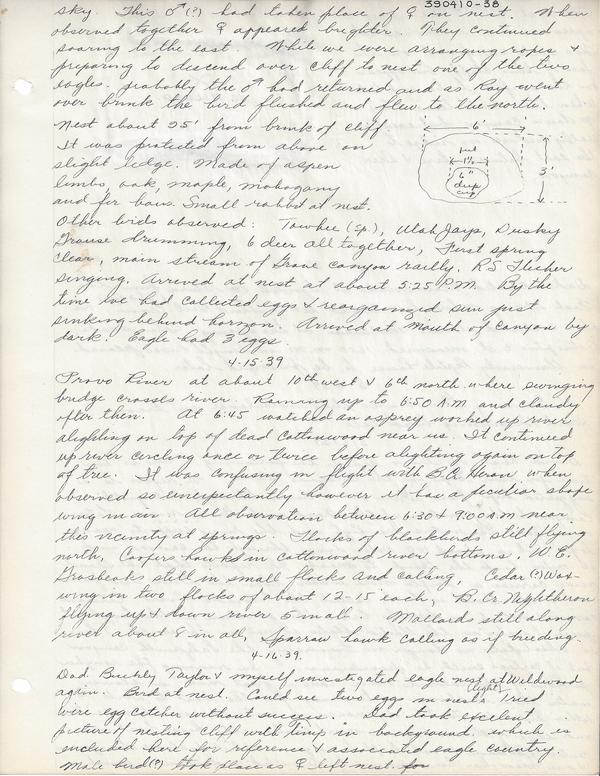 390410-38
sky. This ♂(?) had taken place of ♀ on nest. When
observed together ♀ appeared brighter. They continued
soaring to the east. While we were arranging ropes &
preparing to descend over cliff to nest one of the two
eagles. probably the ♂ had returned and as Ray went
over brink the bird flushed and flew to the north.
Nest about 25' from brink of cliff.
It was protected from above on
slight ledge. Made of aspen
limbs, oak, maple, mahogany
and fir bows. Small rabbit at nest.
6'
3'
1½
6"
deep
cup
Other birds observed: Towhee (sp.), Utah Jays, Dusky
Grouse drumming, 6 deer all together, First spring
clear, main stream of Grove canyon railly. R.S. Flicker
singing. Arrived at nest at about 5:25 P.M. By the
time we had collected eggs & reorganized sun just
sinking behind horizon. Arrived at mouth of canyon by
dark. Eagle had 3 eggs.
4-15-39
Provo River at about 10th west & 6th north where swinging
bridge crosses river. Raining up to 6:50 A.M. and cloudy
after then. At 6:45 watched an osprey worked up river
alighting on top of dead Cottonwood near us. It continued
up river circling once or twice before alighting again on top
of tree. It was confusing in flight with B.C. Heron when
observed so unexpectantly however it has a peculiar shape
wing in air. All observation between 6:30 & 9:00 A.M near
this vicinity at springs. Flocks of blackbirds still flying
north, Coopers hawks in cottonwood river bottoms, W.E.
Grosbeaks still in small flocks and calling, Cedar (?) Wax-
wing in two flocks of about 12-15 each, B. Cr. Nightheron
flying up & down river 5 in all. Mallards still along
river about 8 in all, Sparrow hawk calling as if breeding.
4-16-39.
Dad. Buckly Taylor & myself investigated eagle nest at Wildwood
again. Bird at nest. Could see two eggs in nest (light). Tried
wire egg catcher without success. Dad took excelent
picture of nesting cliff with timp in background which is
included here for reference & associated eagle country.
Male bird (?) took place as ♀ left nest. for